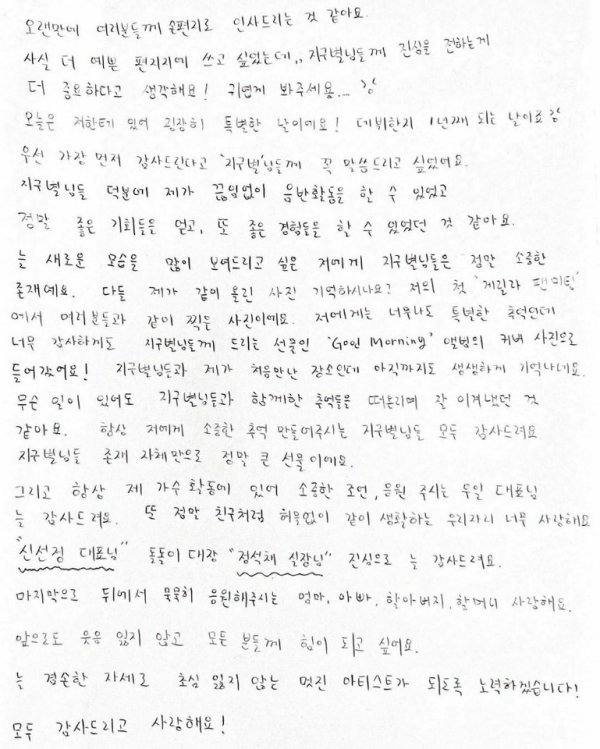 오랜만에 여러분들께 손편지로 인사드리는 것 같아요.
사실 더 예쁜 편지지에 쓰고 싶었는데,, 지구별님들께 진심을 전하는게
더 중요하다고 생각해요! 귀엽게 봐주세용...
오늘은 저한테 있어 굉장히 특별한 날이에요! 데뷔한지 1년째 되는 날이죠
우선 가장 먼저 감사드린다고 '지구별'님들께 꼭 말씀드리고 싶었어요.
지구별님들 덕분에 제가 끊임없이 음반활동을 할 수 있었고
정말 좋은 기회들을 얻고, 또 좋은 경험들을 할 수 있었던 것 같아요.
늘 새로운 모습을 많이 보여드리고 싶은 저에게 지구별님들은 정말 소중한
존재예요. 다들 제가 같이 올린 사진 기억하시나요? 저의 첫 '게릴라 팬미팅'
에서 여러분들과 같이 찍은 사진이에요. 저에게는 너무나도 특별한 추억인데
너무 감사하게도 지구별님들께 드리는 선물인 'Good Morning' 앨범의 커버 사진으로
들어갔어요! 지구별님들과 제가 처음만난 장소인데 아직까지도 생생하게 기억나네요.
무슨 일이 있어도 지구별님들과 함께한 추억들을 떠올리며 잘 이겨냈던 것
같아요. 항상 저에게 소중한 추억 만들어주시는 지구별님들 모두 감사드려요
지구별님들 존재 자체만으로 정말 큰 선물이에요.
그리고 항상 제 가수 활동에 있어 소중한 조언, 응원 주시는 두일 대표님
늘 감사드려요. 또 정말 친구처럼 허물없이 같이 생활하는 우리자리 너무 사랑해요
"신선정 대표님" 돌돌이 대장 "정석채 실장님" 진심으로 늘 감사드려요.
마지막으로 뒤에서 묵묵히 응원해주시는 엄마, 아빠, 할아버지, 할머니 사랑해요.
앞으로도 웃음 잃지 않고 모든 분들께 힘이 되고 싶어요.
늘 겸손한 자세로 초심 잃지 않는 멋진 아티스트가 되도록 노력하겠습니다!
모두 감사드리고 사랑해요!